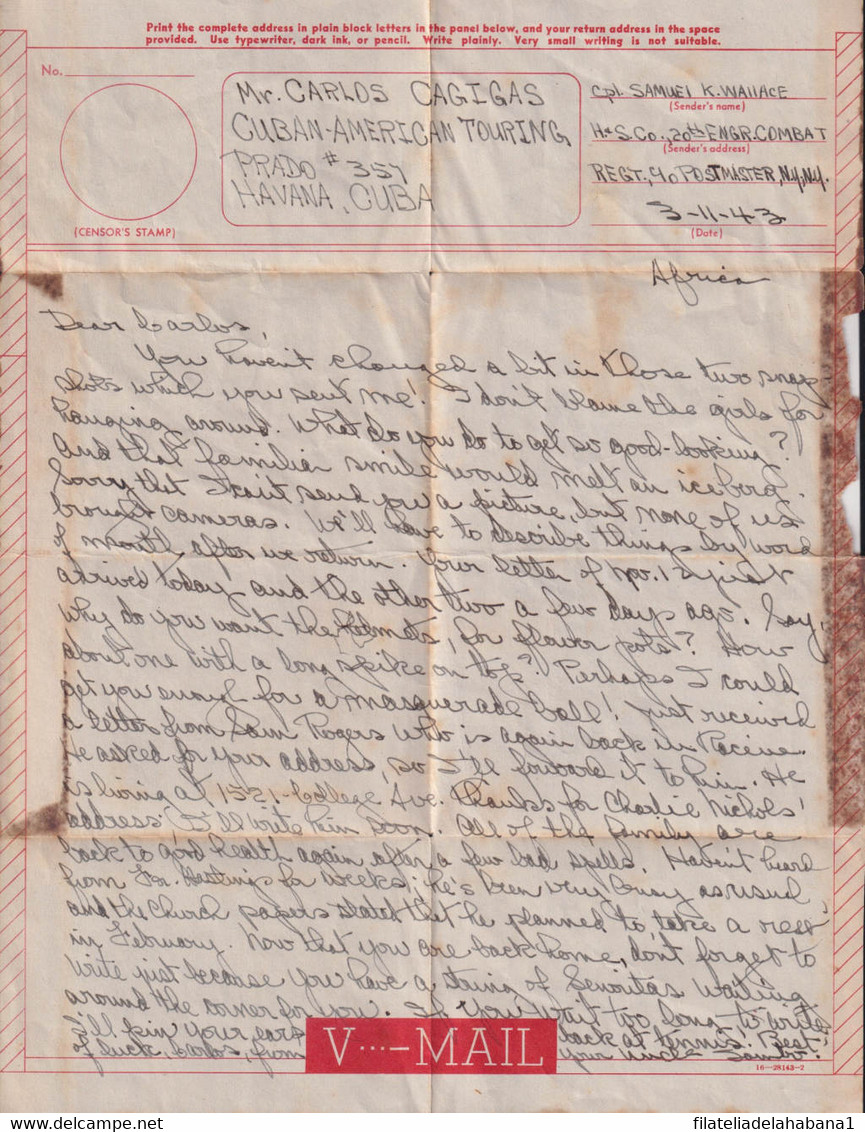 Print the complete address in plain block letters in the panel below, and your return address in the space
provided. Use typewriter, dark ink, or pencil. Write plainly. Very small writing is not suitable.
No.
(CENSOR'S STAMP)
Mr. CARLOS CAGIGAS
CUBAN-AMERICAN TOURING
PRADO # 357
HAVANA, CUBA
Cpl. SAMUEL K. WALLACE
(Sender's name)
H&S. Co., 20th ENGR. COMBAT
(Sender's address)
REGT., % POSTMASTER, N.Y., N.Y.
3-11-43
(Date)
Africa
Dear Carlos,
You haven't changed a bit in those two snap
shots which you sent me! I don't blame the girls for
hanging around. What do you do to get so good-looking?
And that familiar smile would melt an iceberg.
Sorry that I can't send you a picture, but none of us
brought cameras. We'll have to describe things by word
of mouth after we return. Your letter of Nov. 12 just
arrived today and the other two a few days ago. Say,
why do you want the helmets, for flower pots? How
about one with a long spike on top? Perhaps I could
get you enough for a masquerade ball! Just received
a letter from Sam Rogers who is again back in Racine.
He asked for your address, so I'll forward it to him. He
is living at 1521-College Ave. Thanks for Charlie Nichols'
address I'll write him soon. All of the family are
back to good health again after a few bad spells. Haven't heard
from Fr. Hastings for weeks; he's been very busy as usual
and the church papers stated that he planned to take a rest
in February. Now that you are back home, don't forget to
write just because you have a string of Senoritas waiting
around the corner for you. If you wait too long to write
I'll pin your ears back at tennis. Best
of luck, Carlos, from your uncle Sambo.
V···–MAIL
16—28143-2
filateliadelahabana1